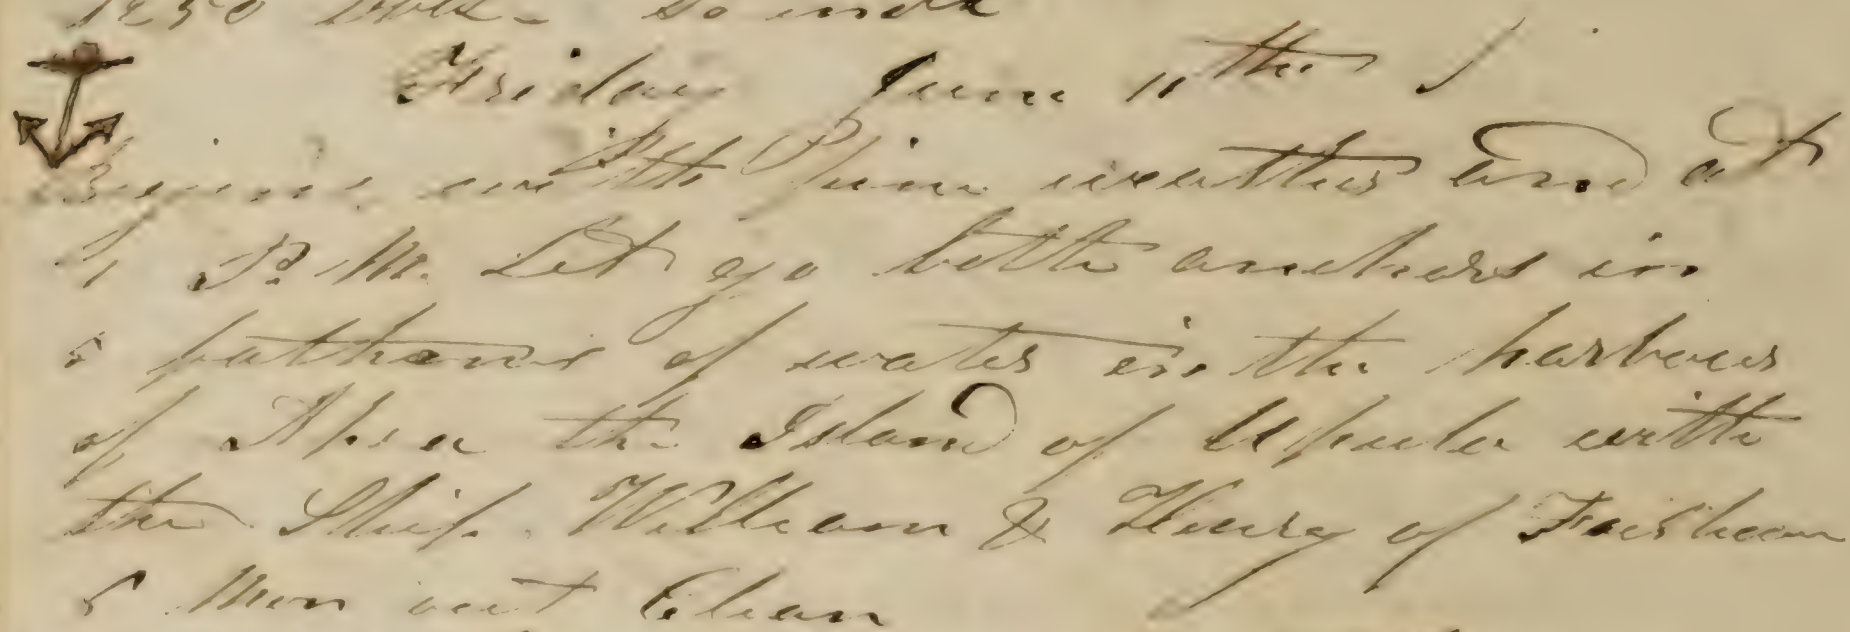 1250 bbls - So ends
Friday June 11th
Begins with fine weather and at
P. M. Let go both anchors in
5 fathoms of water in the harbour
of Apia the Island of Upulu with
the Ship William & Henry of Fairhaven
Mon out Clean